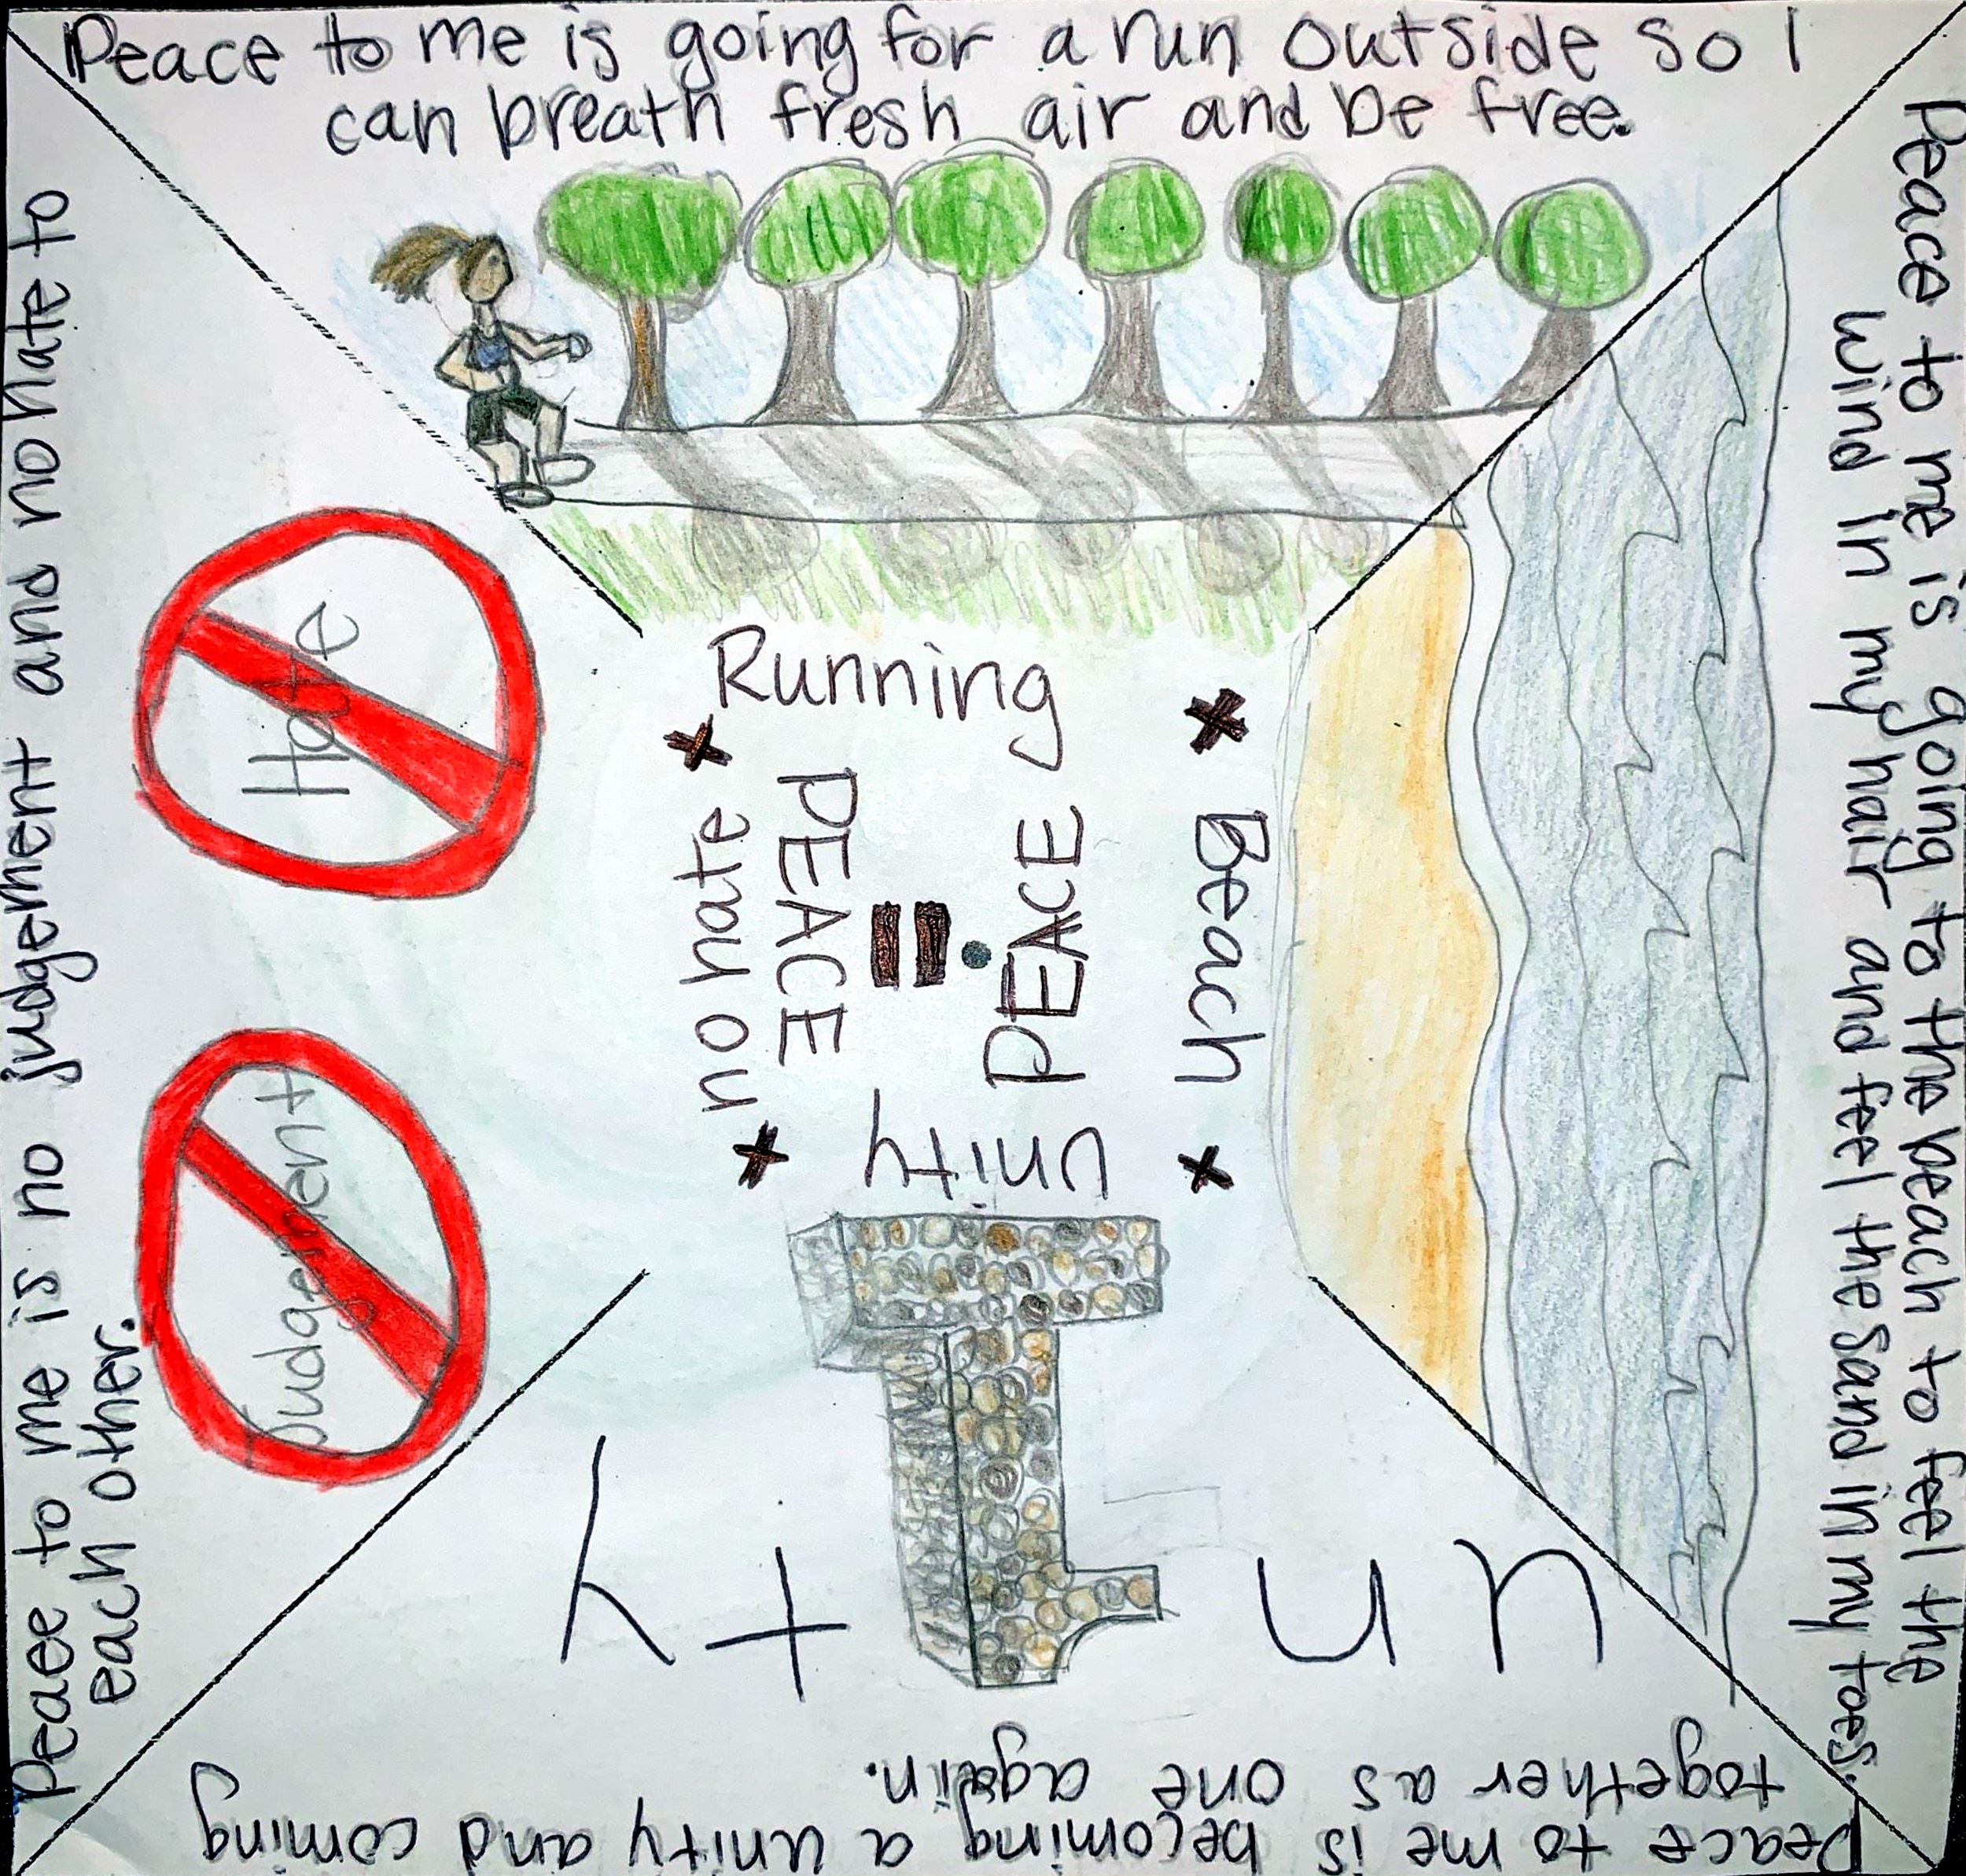 Peace to me is going for a run outside so I
can breath fresh air and be free.
Peace to me is going to the beach to feel the
wind in my hair and feel the sand in my toes.
Peace to me is becoming a unity and coming
together as one again.
Peace to me is no judgement and no hate to
each other.
Hate
Judgement
Running
Beach
unity
no hate
PEACE
PEACE
unity